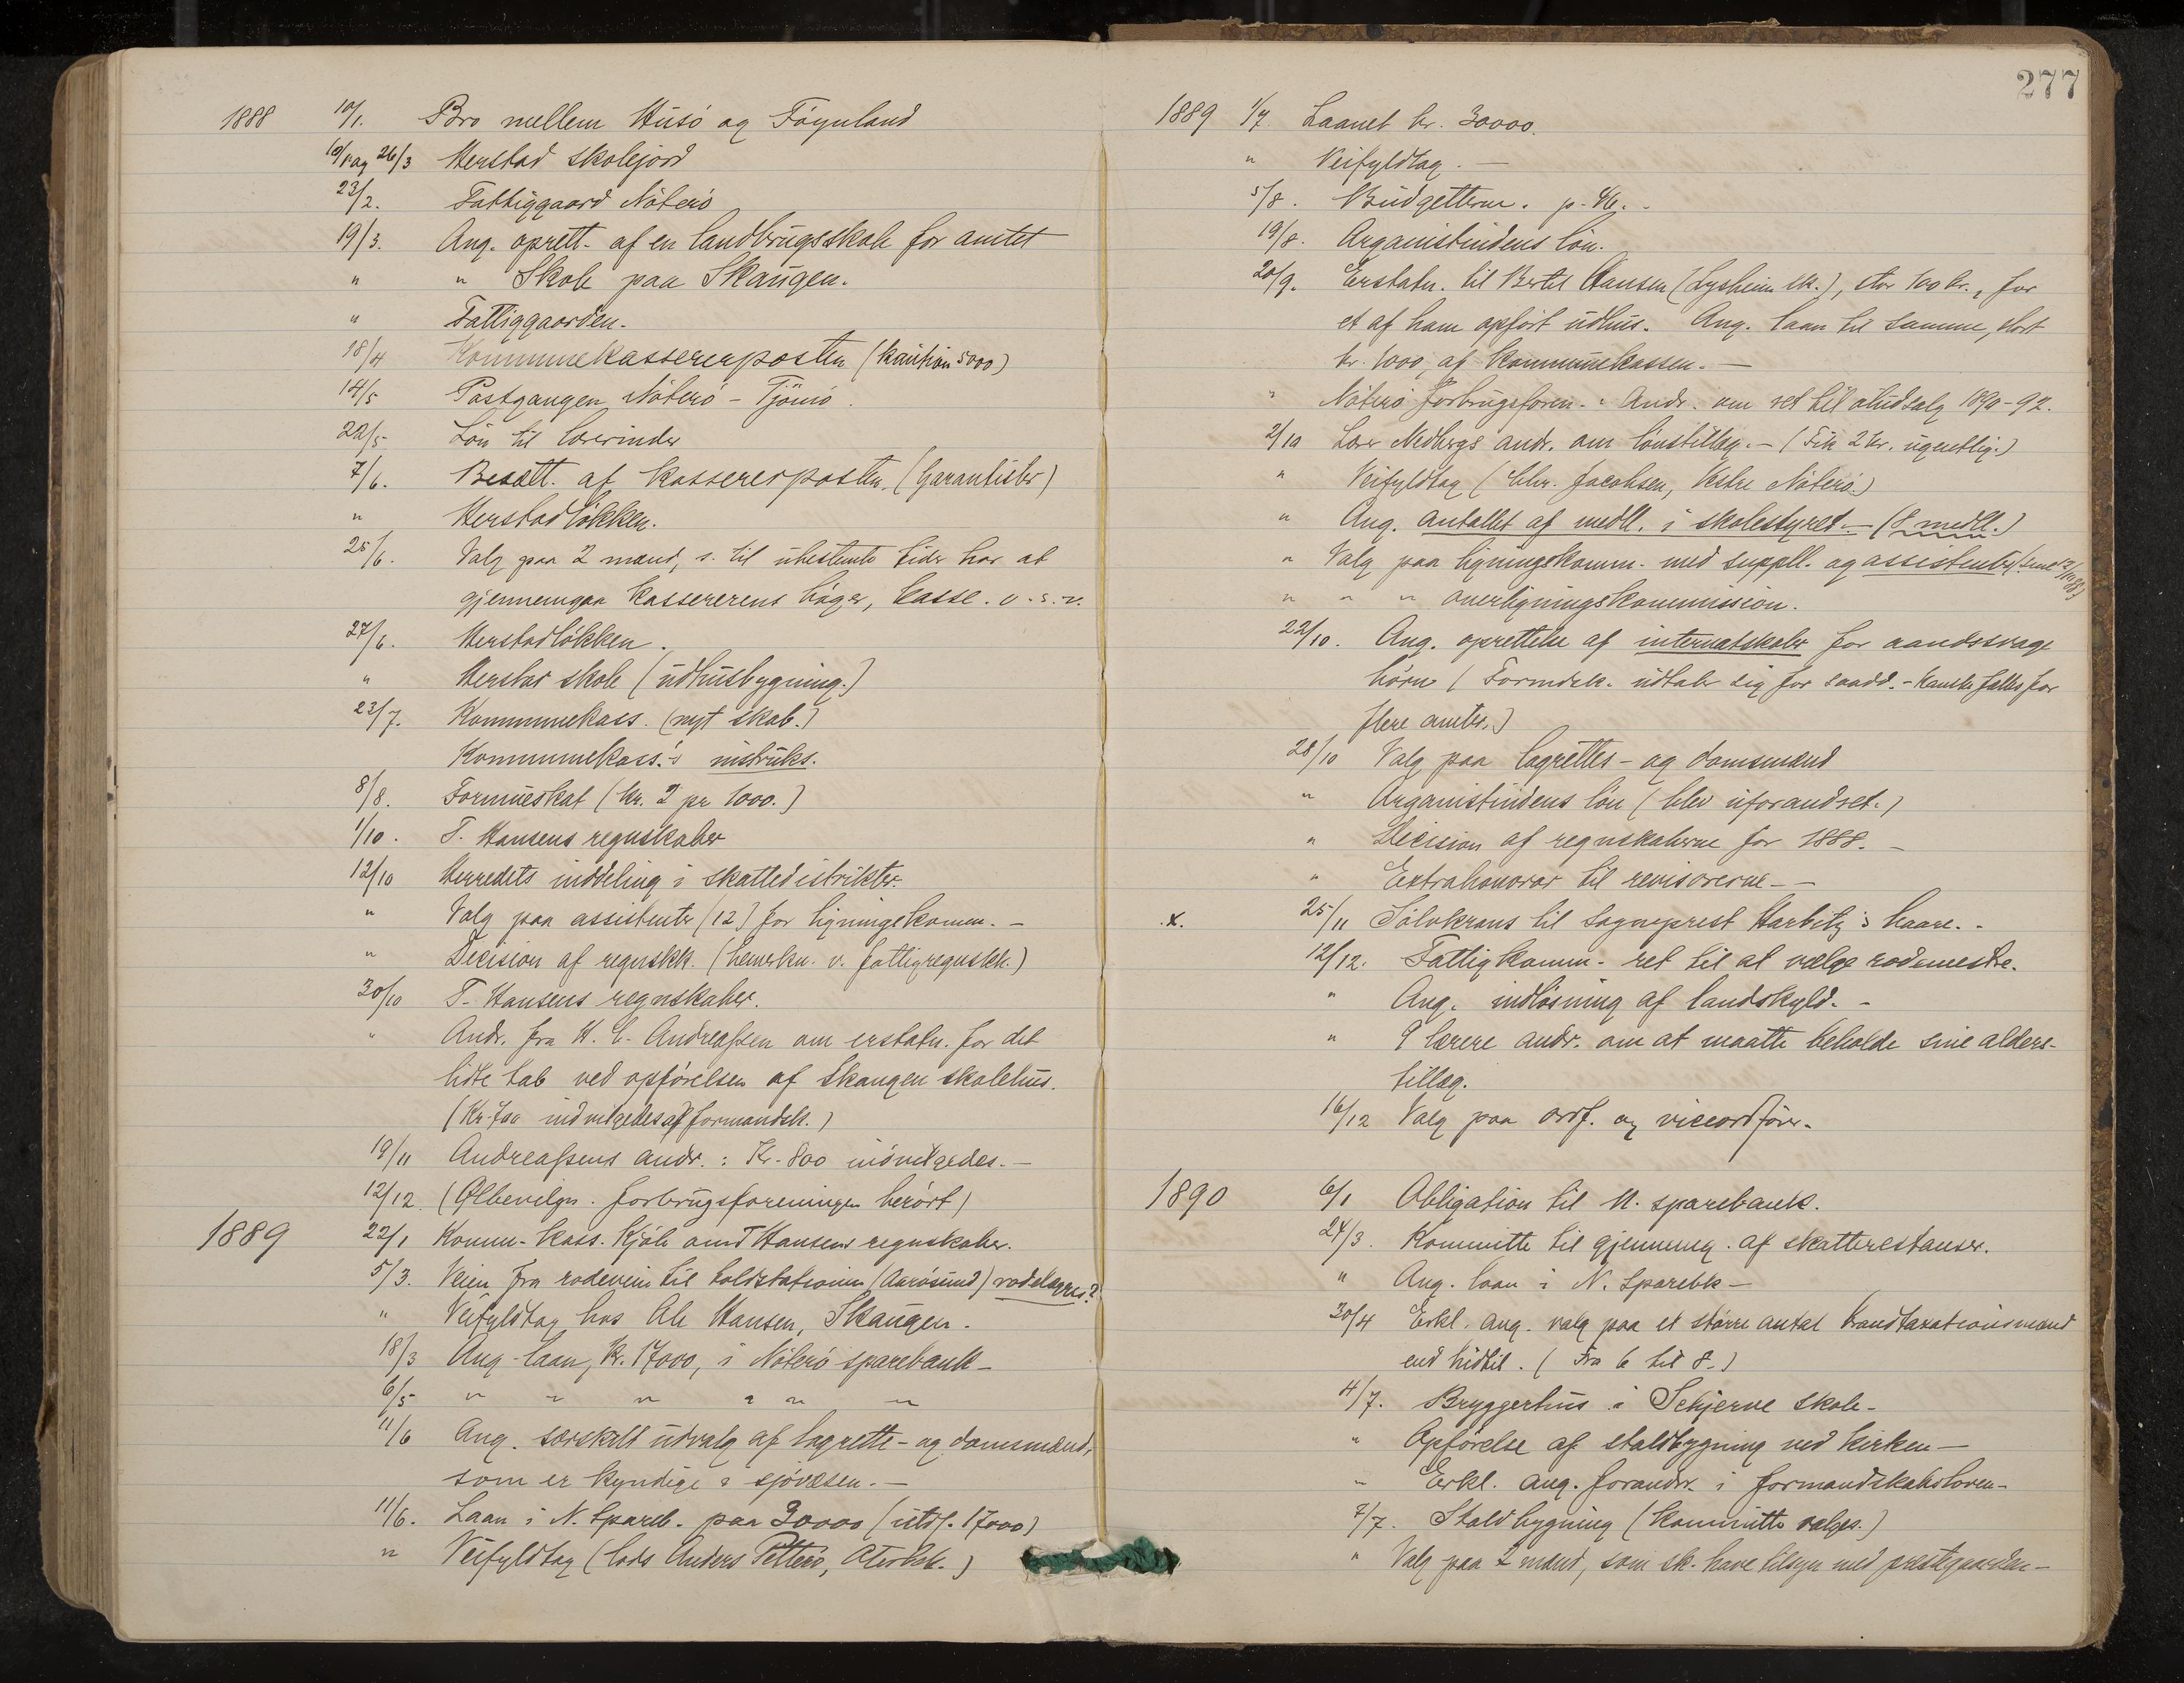 1888 10/1. Bro mellem Husö og Föynland
10/1 og 26/3 Herstad skolejord
23/2. Fattiggaard Nöterö
19/3. Ang. oprett. af en landbrugsskole for amtet
" " Skole paa Skaugen.
" Fattiggaarden.
18/4 Kommunekassererposten (kaution 5000)
14/5 Postgangen Nöterö - Tjömö.
22/5 Lön til lærerinder
7/6. Besætt. af kassererposten. (Garantister)
" Herstadlökken.
25/6. Valg paa 2 mænd, s. til ubestemte tider har at
gjennemgaa kassererens böger, kasse. o.s.v.
27/6. Herstadlökken.
" Herstad skole (udhusbygning.)
23/7. Kommunekass. (nyt skab.)
Kommunekass.'s instruks.
8/8. Formueskat (kr. 2 pr 1000.)
1/10. T. Hansens regnskaber
12/10 Herredets inddeling i skattedistrikter.
" Valg paa assistenter (12) for ligningskomm. -
" Decision af regnskk. (bemerkn. v. fattigregnskk.)
30/10 T. Hansens regnskaber.
" Andr. fra H. C. Andreassen om erstatn. for det
lidte tab ved opförelsen af Skaugen skolehus.
(Kr. 700 indvilgedes af formandsk.)
19/11 Andreassens andr.: Kr. 800 indvilgedes. -
12/12. (Ølbevilgn. forbrugsforeningen berört)
1889 22/1 Komm. kass. Kjöle om T Hansens regnskaber.
5/3. Veien fra rodeveien til toldstationen (Aarösund) rodelægges?
" Veifyldtag hos Ole Hansen, Skaugen.
18/3 Ang. laan, kr. 17000, i Nöterö sparebank -
6/5 " " " " " "
11/6 Ang. særskilt udvalg af lagrette- og domsmænd,
som er kyndige i sjövæsen. -
11/6. Laan i N. Spareb. paa 30000 (utds. 17000)
" Veifyldtag (lods Anders Petterö, )
277
1889 1/7 Laanet kr. 30000.
" Veifyldtag. -
5/8. Budgetterne. p. 46.
19/8. Organistindens lön.
20/9. Erstatn. til Bertel Hansen (Lysheim sk.), stor 100 kr., for
et af ham opfört udhus. Ang. laan til samme, stort
kr. 1000, af kommunekassen. -
" Nöterö forbrugsforen.: Andr. om ret til øludsalg 1890-92.
2/10 Lærer Nedbergs andr. om lönstillæg. - (Fik 2 kr. ugentlig.)
" Veifyldtag (Chr. Jacobsen, Vestre Nöterö.)
" Ang. antallet af medll. i skolestyret. - (8 medll.)
" Valg paa ligningskomm. med suppll. og assistenter
" " " overligningskommission.
22/10. Ang. oprettelse af internatskoler for aandssvage
börn (Formdsk. udtaler sig for saadd. - kanske fælles for
flere amter.)
28/10 Valg paa lagrettes- og domsmænd
" Organistindens lön (blev uforandret.)
" Decision af regnskaberne for 1888. -
" Extrahonorar til revisorerne - -
x. 25/11 Sölvkrans til Sogneprest Harbitz's baare. -
12/12. Fattigkomm. ret til at vælge rodemestre.
" Ang. indlösning af landskyld. -
" 9 lærere andr. om at maatte beholde sine alders-
tillæg.
16/12 Valg paa ordf. og viceordförer.
1890 6/1 Obligation til N. sparebank.
24/3. Komitte til gjennemg. af skatterestanser.
" Ang. laan i N. Sparebk -
30/4 Erkl. ang. valg paa et större antal brandtaxationsmænd
end hidtil. (Fra 6 til 8.)
4/7. Bryggerhus i Schjerve skole -
" Opförelse af staldbygning ved kirken -
" Erkl. ang. forandr. i formandskabsloven -
7/7. Staldbygning (Komitte vælges.)
" Valg paa 2 mænd, som sk. have tilsyn med prestegaarden -